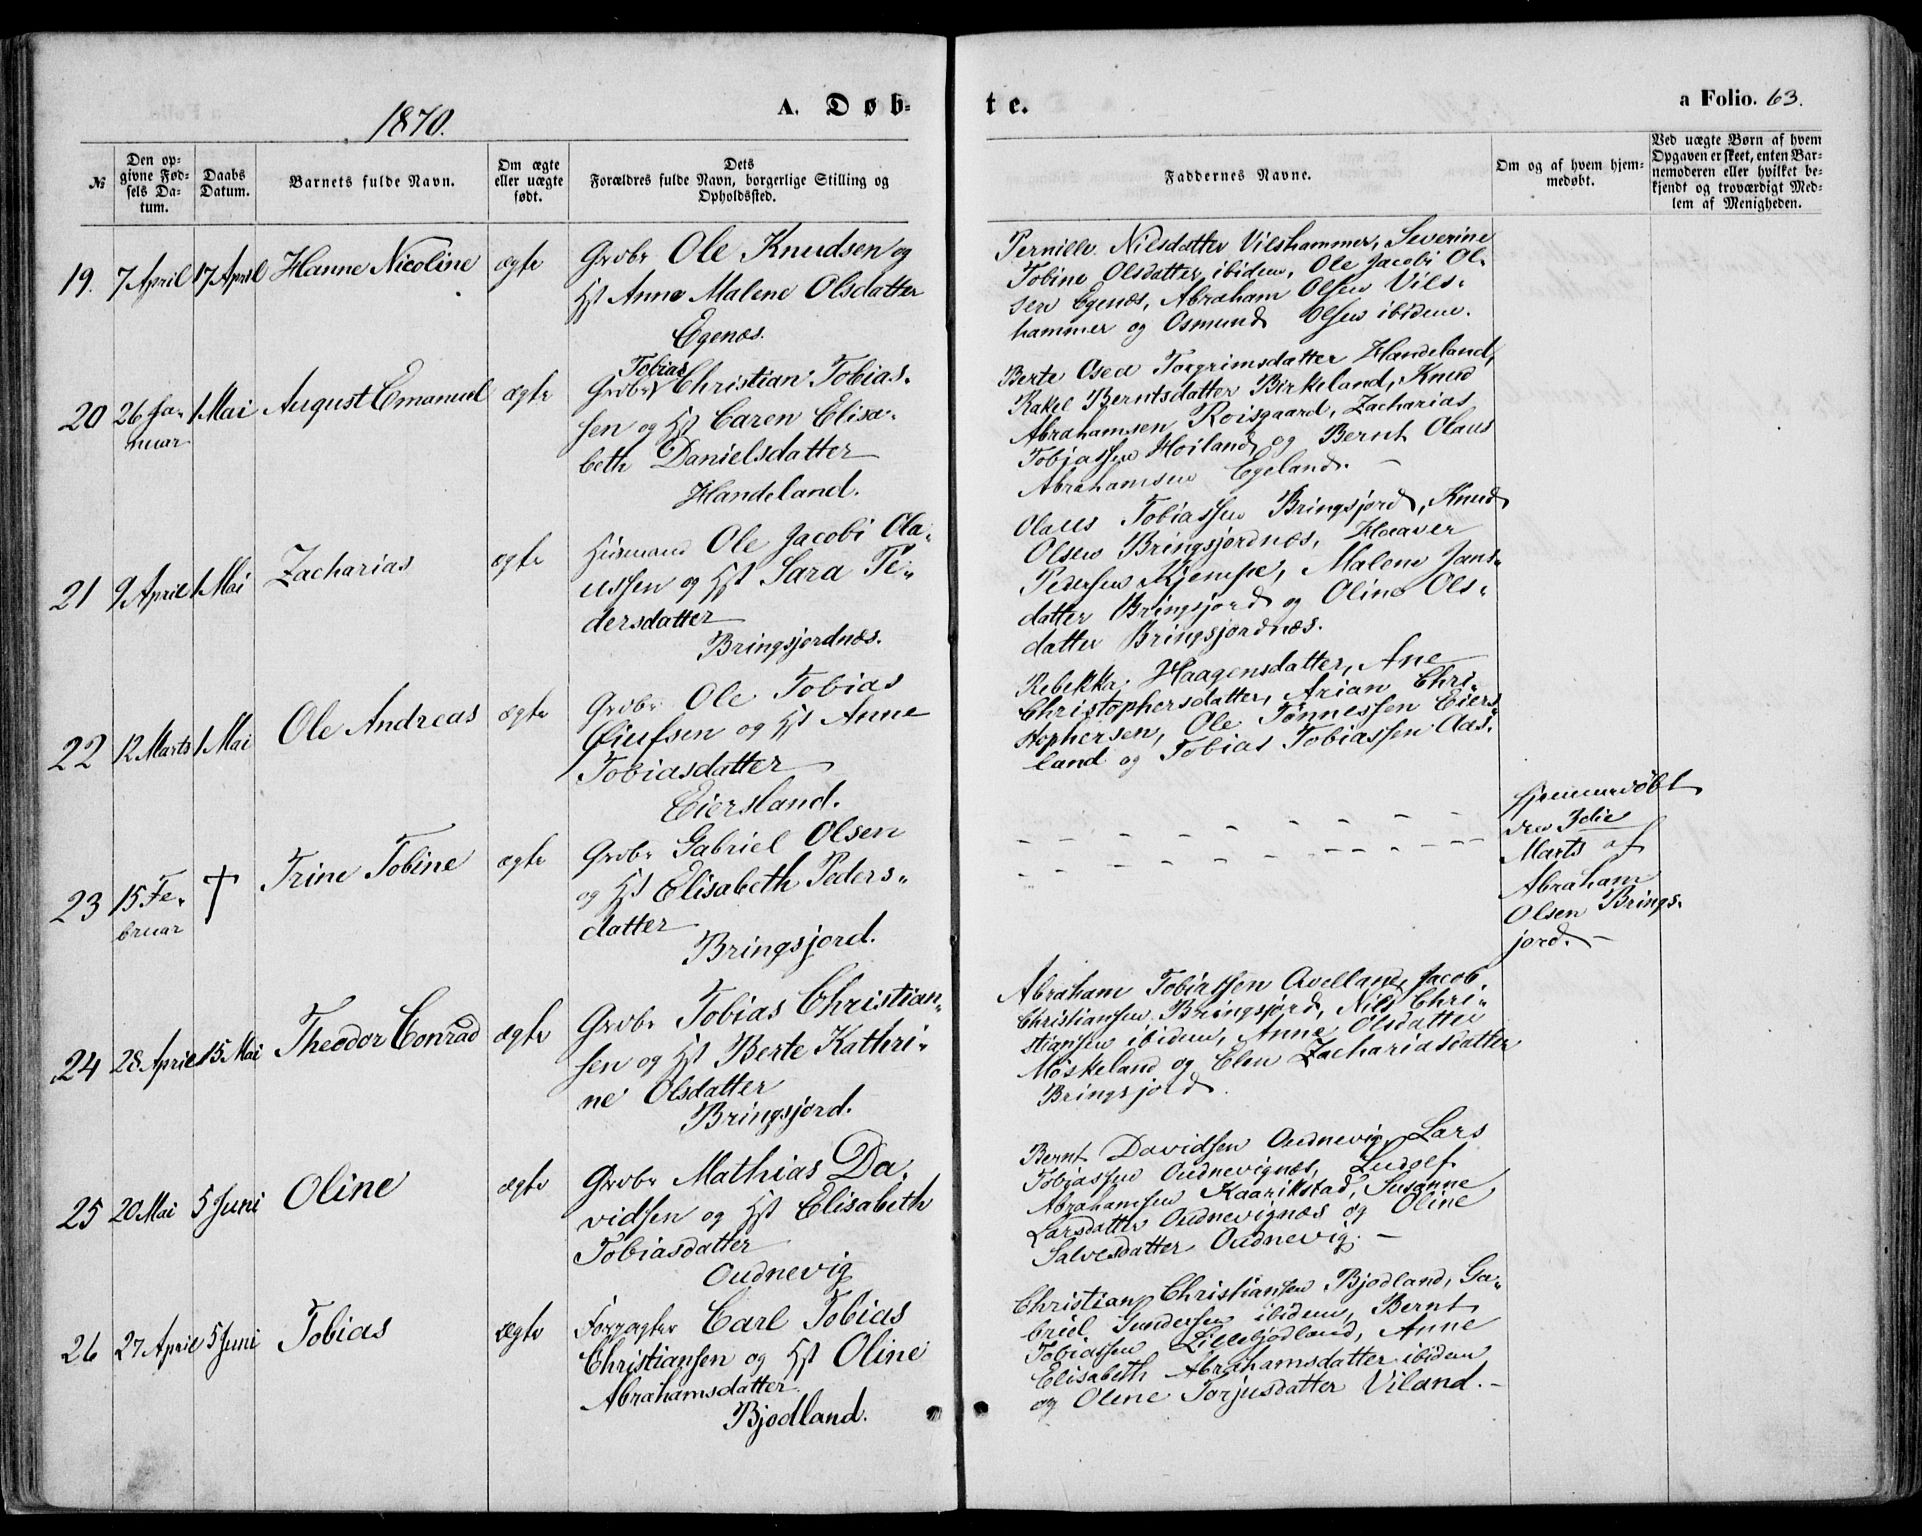 1870.
A. Døb-
te.
a Folio. 63.
№
Den op-
givne Fød-
sels Da-
tum.
Daabs
Datum.
Barnets fulde Navn.
Om ægte
eller uægte
født.
Dets
Forældres fulde Navn, borgerlige Stilling og
Opholdssted.
Faddernes Navne.
Om og af hvem hjem-
medøbt.
Ved uægte Børn af hvem
Opgaven er skeet, enten Bar-
nemoderen eller hvilket be-
kjendt og troværdigt Med-
lem af Menigheden.
19. 7 April 17 April Hanne Nicoline ægte
Grdbr Ole Knudsen og
Hst Anne Malene Olsdatter
Egenæs.
Pernille Nilsdatter Vilshammer, Severine
Tobine Olsdatter ibidem, Ole Jacobi Ol-
sen Egenæs, Abraham Olsen Vils-
hammer og Osmund Olsen ibidem.
20 26 Ja-
nuar
1 Mai August Emanuel ægte
Tobias
Grdbr Christian Tobias-
sen og Hst Caren Elisa-
beth Danielsdatter
Handeland.
Berte Osea Torgrimsdatter Handeland,
Rakel Berntsdatter Birkeland, Knud
Abrahamsen Roisgaard, Zacharias
Tobiassen Høiland og Bernt Olaus
Abrahamsen Egeland. -
21 9 April 1 Mai Zacharias ægte
Husmand Ole Jacobi Ola-
ussen og Hst Sara Pe-
dersdatter
Bringsjordnæs.
Olaus Tobiassen Bringsjord, Knud
Olsen Bringsjordnæs,
Pedersen Malene Jans-
datter Bringsjord og Oline Ols-
datter Bringsjordnæs.
22 12 Marts 1 Mai Ole Andreas ægte
Grdbr Ole Tobias
og Hst Anne
Tobiasdatter
Eiersland.
Rebekka Haagensdatter, Ane
Christophersdatter, Arian Chri-
stophersen, Ole Tønnessen Eiers-
land og Tobias Tobiassen Aas.
23 15 Fe-
bruar
† Trine Tobine ægte
Grdbr Gabriel Olsen
og Hst Elisabeth Peders-
datter
Bringsjord.
hjemmedøbt
den
Marts af
Abraham
Olsen Brings-
jord. -
24 28 April 15 Mai Theodor Conrad ægte
Grdbr Tobias Christian-
sen og Hst Berte Kathri-
ne Olsdatter
Bringsjord.
Abraham Tobiassen Avelland, Jacob
Christiansen Bringsjord, Nils Chri-
stiansen ibidem, Anne Olsdatter
Møskeland og Elen Zachariasdatter
Bringsjord
25 20 Mai 5 Juni Oline ægte
Grdbr Mathias Da-
vidsen og Hst Elisabeth
Tobiasdatter
Oudnevig
Bernt Davidsen Oudnevig, Lars
Tobiassen Oudnevignæs, Ludolf
Abrahamsen Kaarikstad, Susanne
Larsdatter Oudnevignæs og Oline
Salvesdatter Oudnevig. -
26 27 April 5 Juni Tobias ægte
Forpagter Carl Tobias
Christiansen og Hst Oline
Abrahamsdatter
Bjodland.
Christian Christiansen Bjodland, Ga-
briel Gundersen ibidem, Bernt
Tobiassen Lillebjodland, Anne
Elisabeth Abrahamsdatter ibidem
og Olene Torjusdatter Viland. -